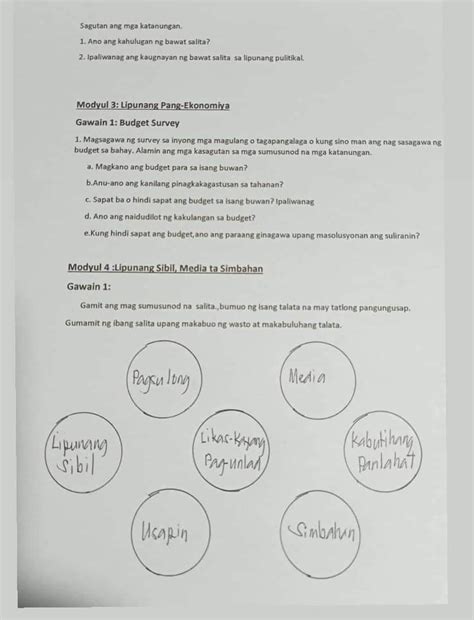 Sagutan ang mga katanungan.
1. Ano ang kahulugan ng bawat salita?
2. Ipaliwanag ang kaugnayan ng bawat salita sa lipunang pulitikal.
Modyul 3: Lipunang Pang-Ekonomiya
Gawain 1: Budget Survey
1. Magsagawa ng survey sa inyong mga magulang o tagapangalaga o kung sino man ang nag sasagawa ng
budget sa bahay. Alamin ang mga kasagutan sa mga sumusunod na mga katanungan.
a. Magkano ang budget para sa isang buwan?
b.Anu-ano ang kanilang pinagkakagastusan sa tahanan?
c. Sapat ba o hindi sapat ang budget sa isang buwan? Ipaliwanag
d. Ano ang naidudilot ng kakulangan sa budget?
e.Kung hindi sapat ang budget,ano ang paraang ginagawa upang masolusyonan ang suliranin?
Modyul 4 :Lipunang Sibil, Media ta Simbahan
Gawain 1:
Gamit ang mag sumusunod na salita.,bumuo ng isang talata na may tatlong pangungusap.
Gumamit ng ibang salita upang makabuo ng wasto at makabuluhang talata.
Pagsulong
Media
Lipunang
Sibil
Likas-Kayang
Pag-unlad
Kabutihang
Panlahat
Usapin
Simbahan